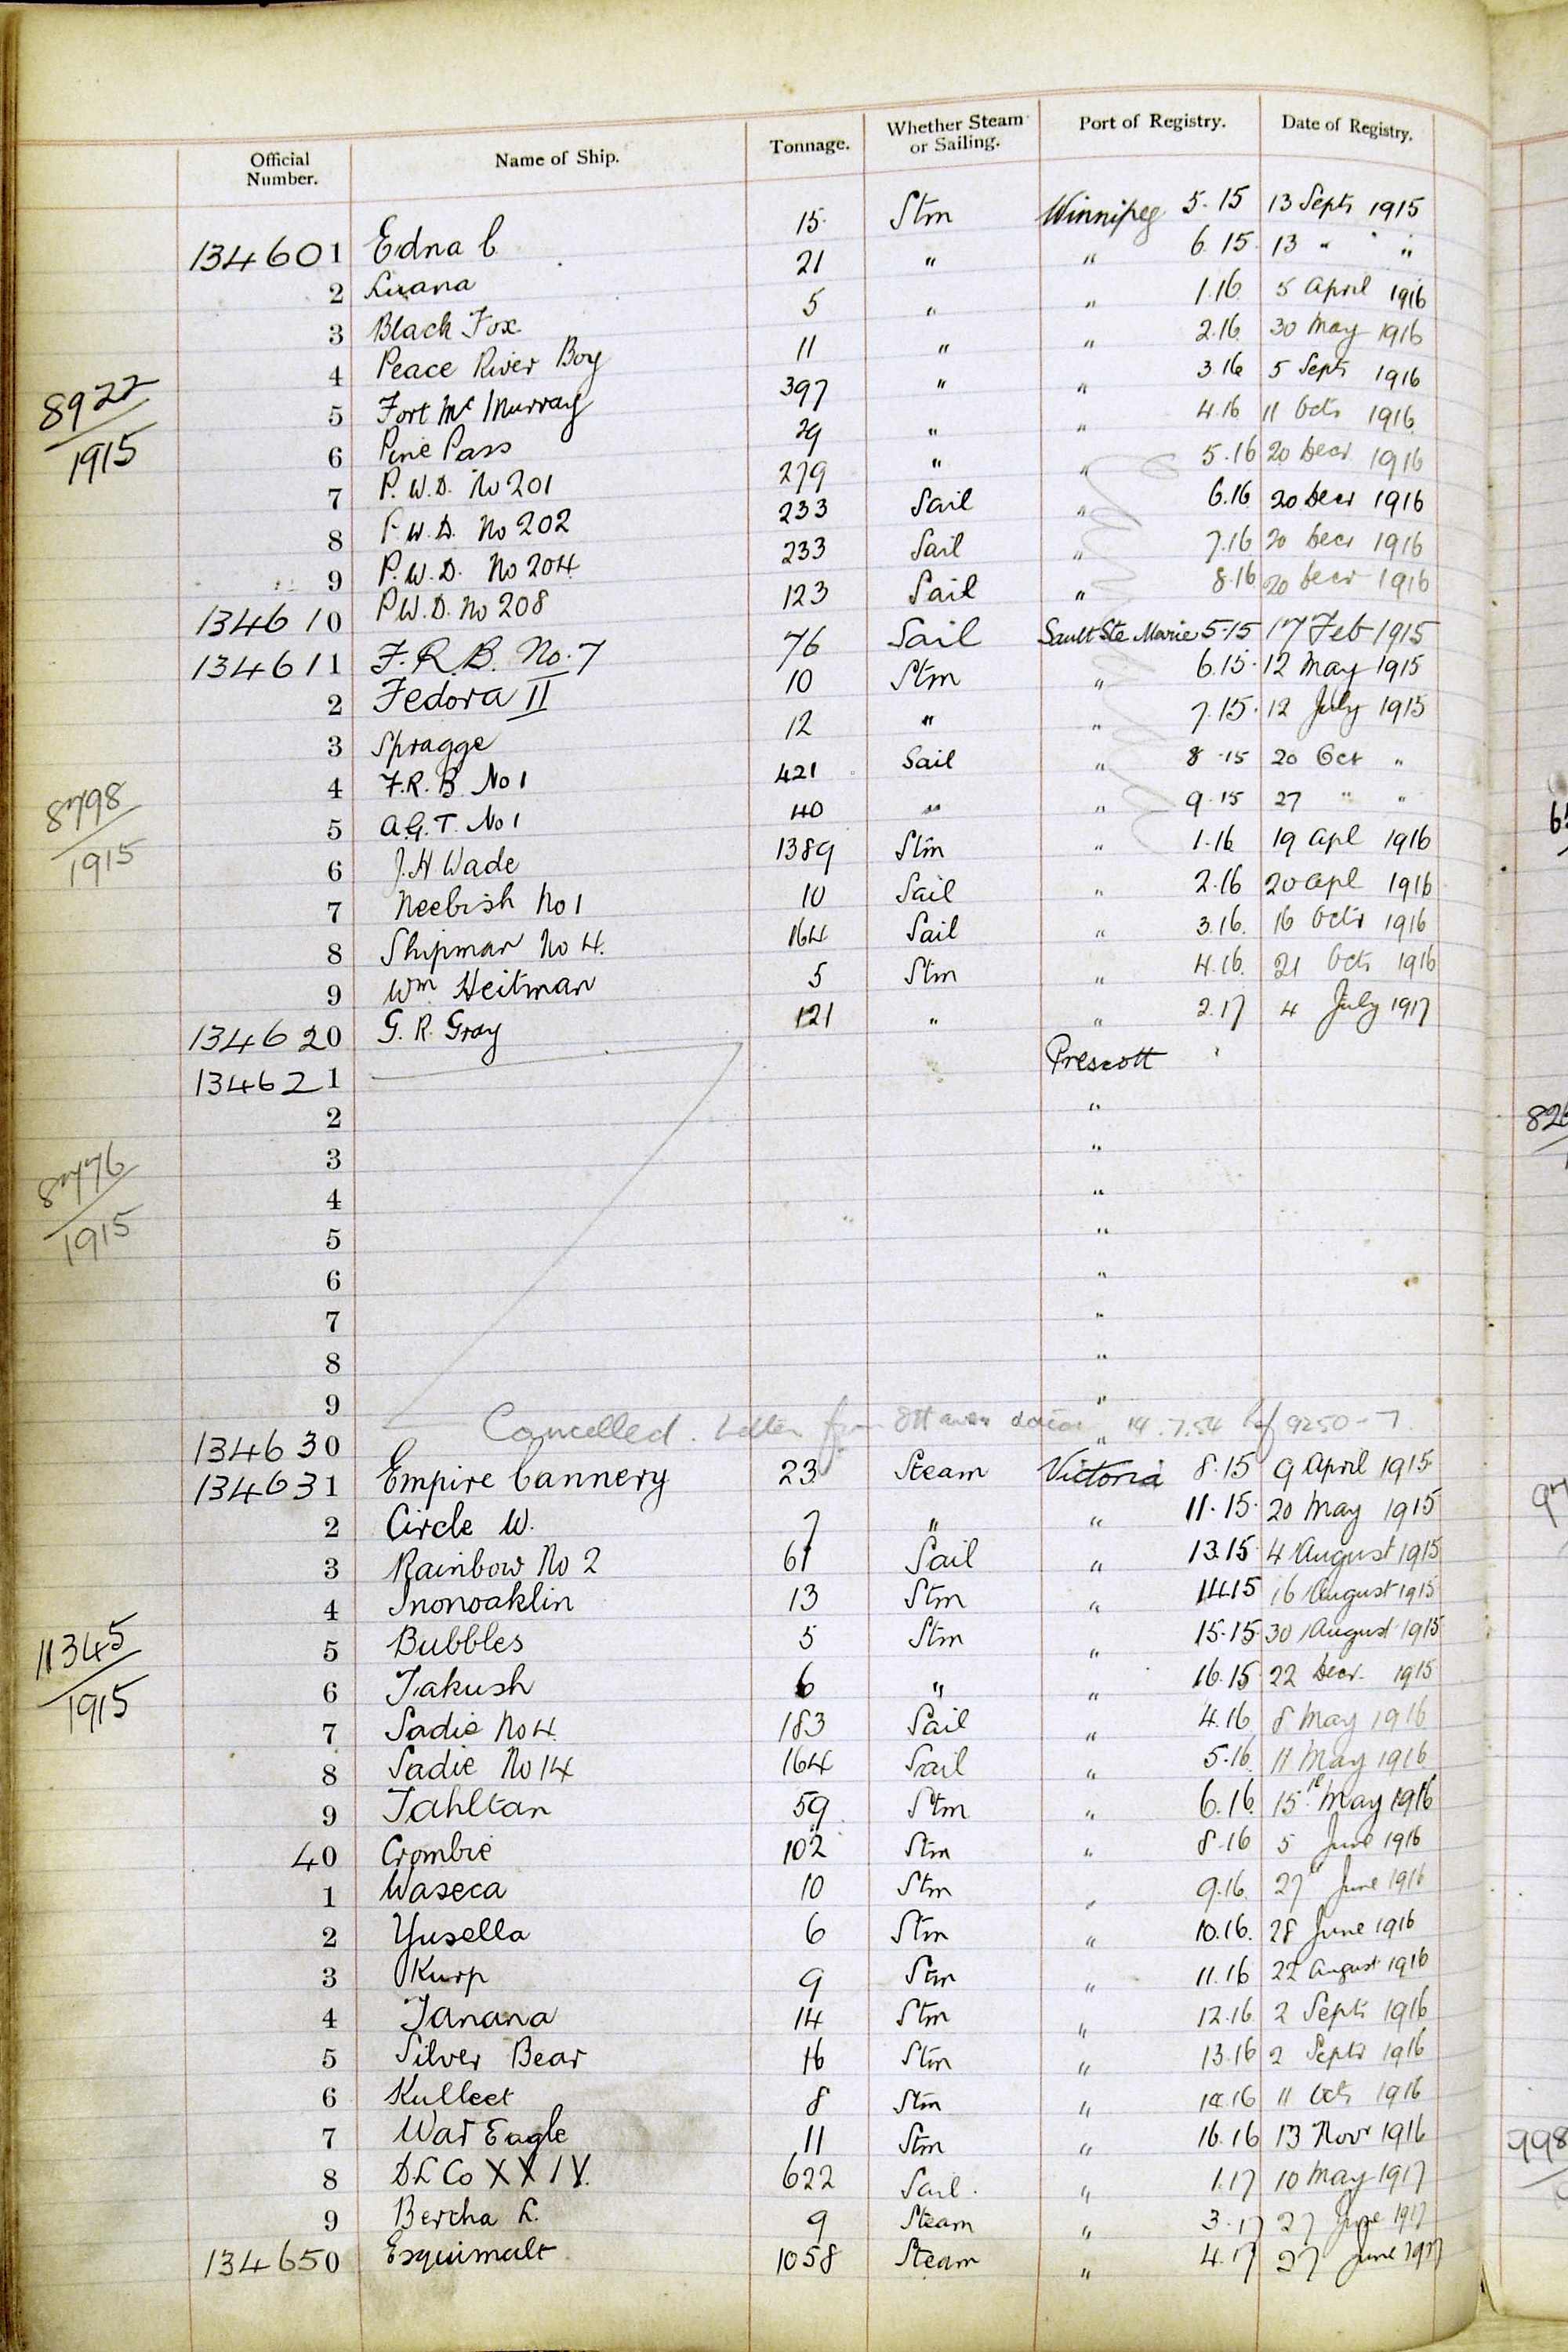 Official Number. Name of Ship. Tonnage. Whether Steam or Sailing. Port of Registry. Date of Registry.
134601 Edna C 15 Stm Winnipeg 5.15 13 Septr 1915
2 Luana 21 " " 6.15 13 " "
3 Black Fox 5 " " 1.16 5 April 1916
4 Peace River Boy 11 " " 2.16 30 May 1916
8922/1915
5 Fort McMurray 397 " " 3.16 5 Septr 1916
6 Pine Pass 29 " " 4.16 11 Octr 1916
7 P.W.D. No 201 279 " " 5.16 20 Decr 1916
8 P.W.D. No 202 233 Sail " 6.16 20 Decr 1916
9 P.W.D. No 204 233 Sail " 7.16 20 Decr 1916
134610 P.W.D. No 208 123 Sail " 8.16 20 Decr 1916
134611 F.R.B. No. 7 76 Sail Sault Ste Marie 5.15 17 Feb 1915
2 Fedora II 10 Stm " 6.15 12 May 1915
3 Spragge 12 " " 7.15 12 July 1915
4 F.R.B. No 1 421 Sail " 8.15 20 Oct "
8798/1915
5 A.G.T. No 1 40 " " 9.15 27 " "
6 J.H Wade 1389 Stm " 1.16 19 Apl 1916
7 Neebish No 1 10 Sail " 2.16 20 Apl 1916
8 Shipman No 4. 164 Sail " 3.16 16 Octr 1916
9 Wm Heitman 5 Stm " 4.16 21 Octr 1916
134620 G. R. Gray 121 " " 2.17 4 July 1917
134621 Prescott
2 "
3 "
8776/1915
4 "
5 "
6 "
7 "
8 "
9 "
134630 Cancelled. Letter from Ottawa dated 14.7.54 Ref 9250-7 "
134631 Empire Cannery 23 Steam Victoria 8.15 9 April 1915
2 Circle W. 7 " " 11.15 20 May 1915
3 Rainbow No 2 61 Sail " 13.15 4 August 1915
4 Inonoaklin 13 Stm " 14.15 16 August 1915
11345/1915
5 Bubbles 5 Stm " 15.15 30 August 1915
6 Takush 6 " " 16.15 22 Decr 1915
7 Sadie No 4 183 Sail " 4.16 8 May 1916
8 Sadie No 14 164 Sail " 5.16 11 May 1916
9 Tahltan 59 Stm " 6.16 15th May 1916
40 Crombie 102 Stm " 8.16 5 June 1916
1 Waseca 10 Stm " 9.16 27 June 1916
2 Yusella 6 Stm " 10.16 28 June 1916
3 Kurp 9 Stm " 11.16 22 August 1916
4 Tanana 14 Stm " 12.16 2 Septr 1916
5 Silver Bear 16 Stm " 13.16 2 Septr 1916
6 Kulleet 8 Stm " 14.16 11 Octr 1916
7 War Eagle 11 Stm " 16.16 13 Novr 1916
8 DL Co XXIV. 622 Sail " 1.17 10 May 1917
9 Bertha L. 9 Steam " 3.17 27 June 1917
134650 Esquimalt 1058 Steam " 4.17 27 June 1917